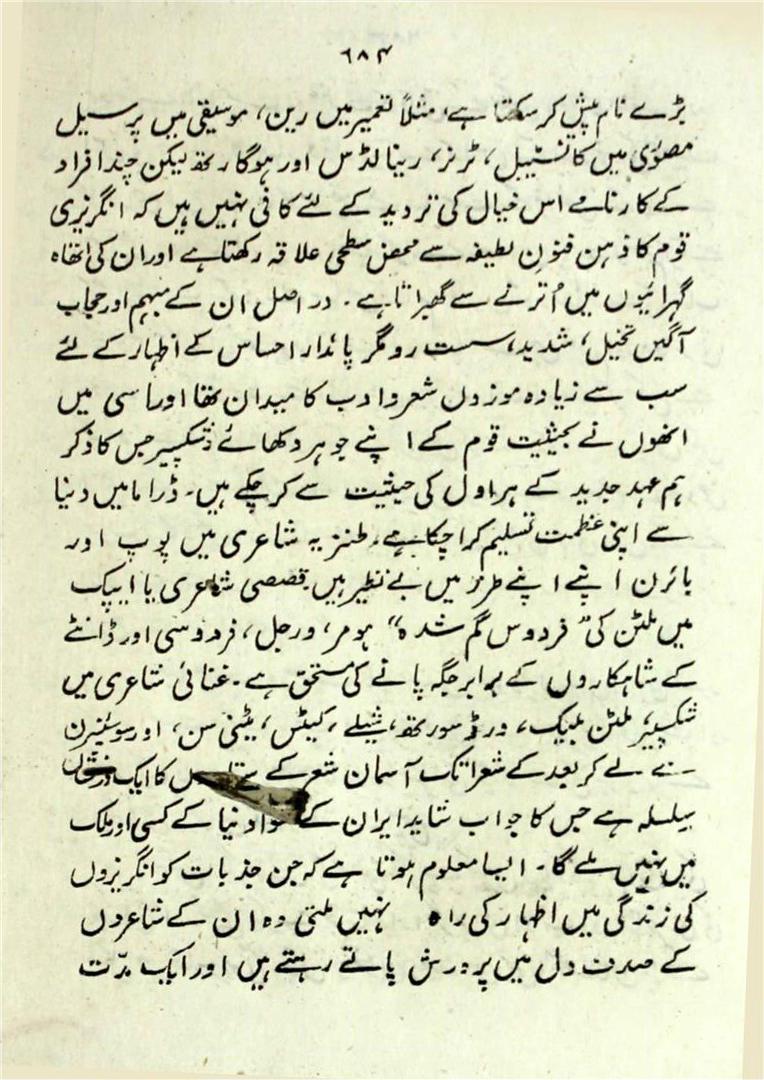 ۶۸۴
بڑے نام پیش کر سکتا ہے، مثلاً تعمیر میں رین، موسیقی میں پرسیل
مصوّری میں کانسٹیبل، ٹرنر، رینالڈس اور ہوگارتھ لیکن چند افراد
کے کارنامے اس خیال کی تردید کے لئے کافی نہیں ہیں کہ انگریزی
قوم کا ذہن فنون لطیفہ سے محض سطحی علاقہ رکھتا ہے اور ان کی اتھاہ
گہرائیوں میں اُترنے سے گھبراتا ہے۔ در اصل ان کے مبہم اور حجاب
آگیں تخیل، شدید، سست رو مگر پائدار احساس کے اظہار کے لئے
سب سے زیادہ موزوں شعر و ادب کا میدان تھا اور اسی میں
انھوں نے بحیثیت قوم کے اپنے جوہر دکھائے شکسپیر جس کا ذکر
ہم عہد جدید کے ہراول کی حیثیت سے کر چکے ہیں۔ ڈراما میں دنیا
سے اپنی عظمت تسلیم کرا چکا ہے۔ طنزیہ شاعری میں پوپ اور
بائرن اپنے اپنے طرز میں بے نظیر ہیں۔ قصصی شاعری یا ایپک
میں ملٹن کی "فردوس گم شدہ" ہومر، ورجل، فردوسی اور ڈانٹے
کے شاہکاروں کے برابر جگہ پانے کی مستحق ہے۔ غنائی شاعری میں
شکسپیر، ملٹن بلیک، ورڈسورتھ، شیلے، کیٹس، ٹینی سن، اور سوئنبرن
سے لے کر بعد کے شعرا تک آسمان شعر کے کا ایک درخشاں
سلسلہ ہے جس کا جواب شاید ایران کے سوا دنیا کے کسی اور ملک
میں نہیں ملے گا۔ ایسا معلوم ہوتا ہے کہ جن جذبات کو انگریزوں
کی زندگی میں اظہار کی راہ نہیں ملتی وہ ان کے شاعروں
کے صدف دل میں پرورش پاتے رہتے ہیں اور ایک مدّت